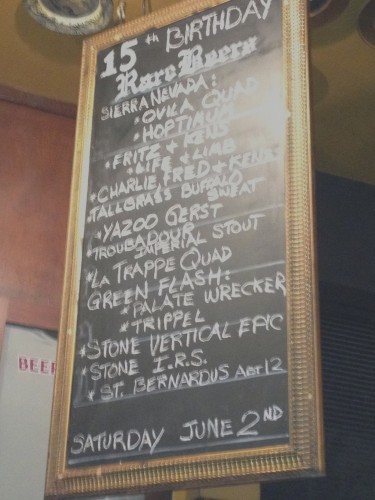 15th BIRTHDAY
Rare Beers
SIERRA NEVADA:
• OVILA QUAD
• HOPTIMUM
• FRITZ + KENS
• LIFE + LIMB
• CHARLIE, FRED + KENS
• TALLGRASS BUFFALO SWEAT
• YAZOO GERST
• TROUBADOUR IMPERIAL STOUT
• LA TRAPPE QUAD
GREEN FLASH:
• PALATE WRECKER
• TRIPPEL
• STONE VERTICAL EPIC
• STONE I.R.S.
• ST. BERNARDUS ABT 12
SATURDAY JUNE 2ND
BEER